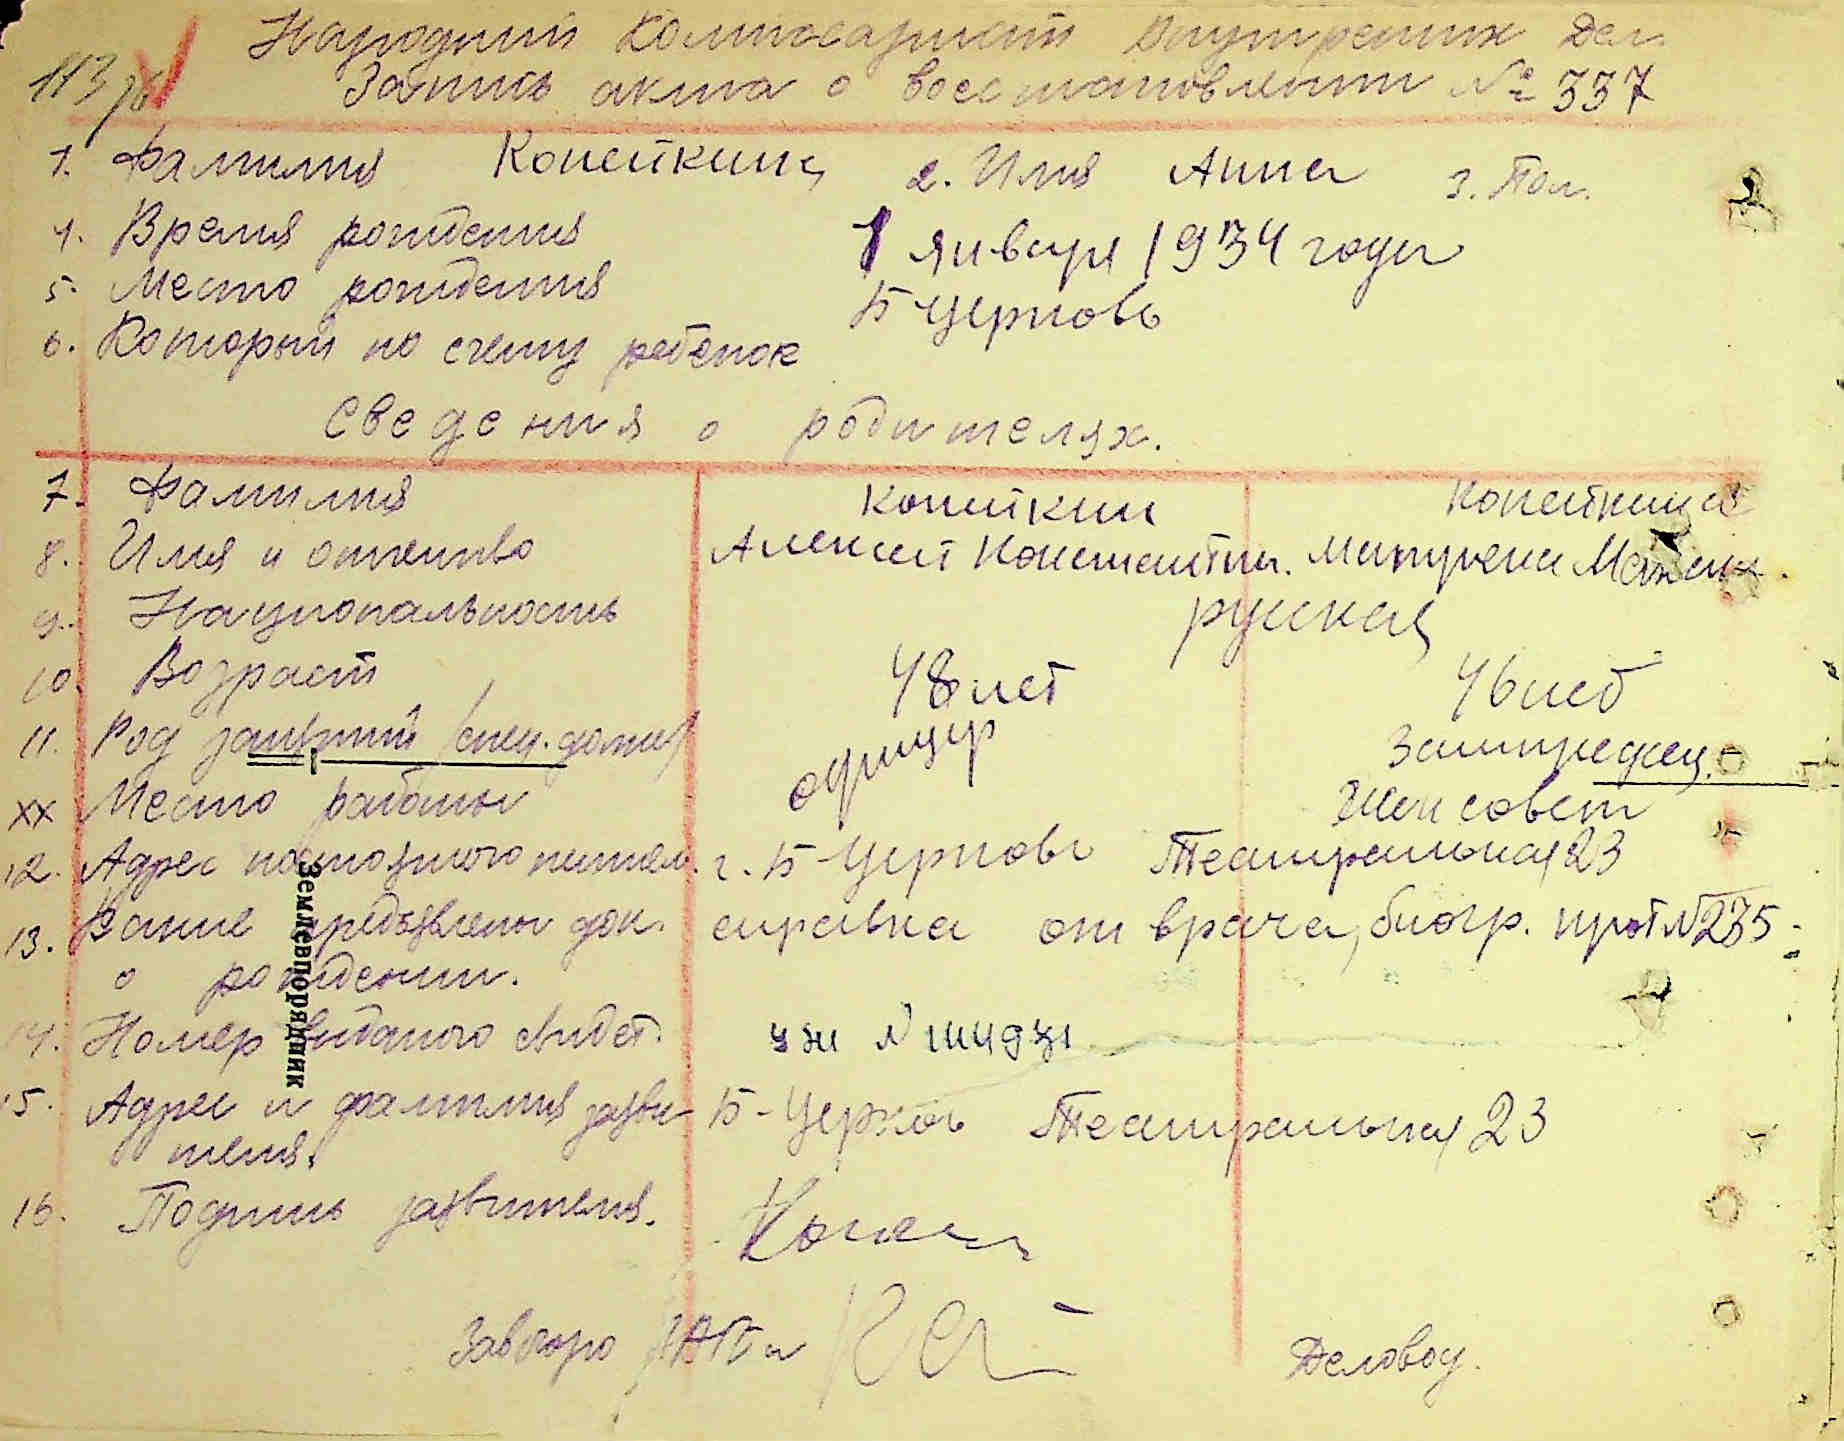 Народний Комисариат Внутрених Дел.
113 зв
Запись акта о восстановлении № 337
1. Фамилия Копейкина 2. Имя Анна 3. Пол.
4. Время рождения 1 января 1934 года
5. Место рождения Б Церковь
6. Который по счету ребенок
Сведения о родителях.
7. Фамилия Копейкин Копейкина
8. Имя и отчество Алексей Константин. Матрена Максим.
9. Национальность русская
10. Возраст 48 лет 46 лет
11. Род занятий (спец. должн) офицер Зампредсед.
хх Место работы Женсовет
12. Адрес постоянного жител. г. Б Церковь Театральная 23
13. Какие предъявлены док. справка от врача, биогр. прот №235
о рождении.
14. Номер виданого свидет. уж №
15. Адрес и фамилия заяви- Б-Церковь Театральная 23
теля.
16. Подпись заявителя.
Завбюро ЗАГСа Деловод.
Землевпорядник